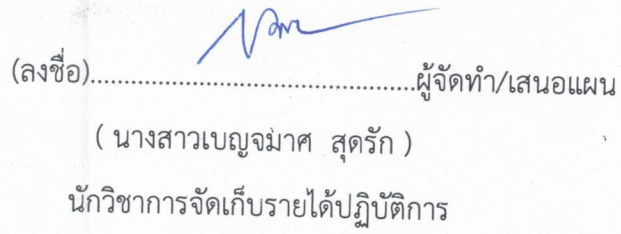 (ลงชื่อ)................................................ผู้จัดทำ/เสนอแผน
( นางสาวเบญจมาศ สุดรัก )
นักวิชาการจัดเก็บรายได้ปฏิบัติการ